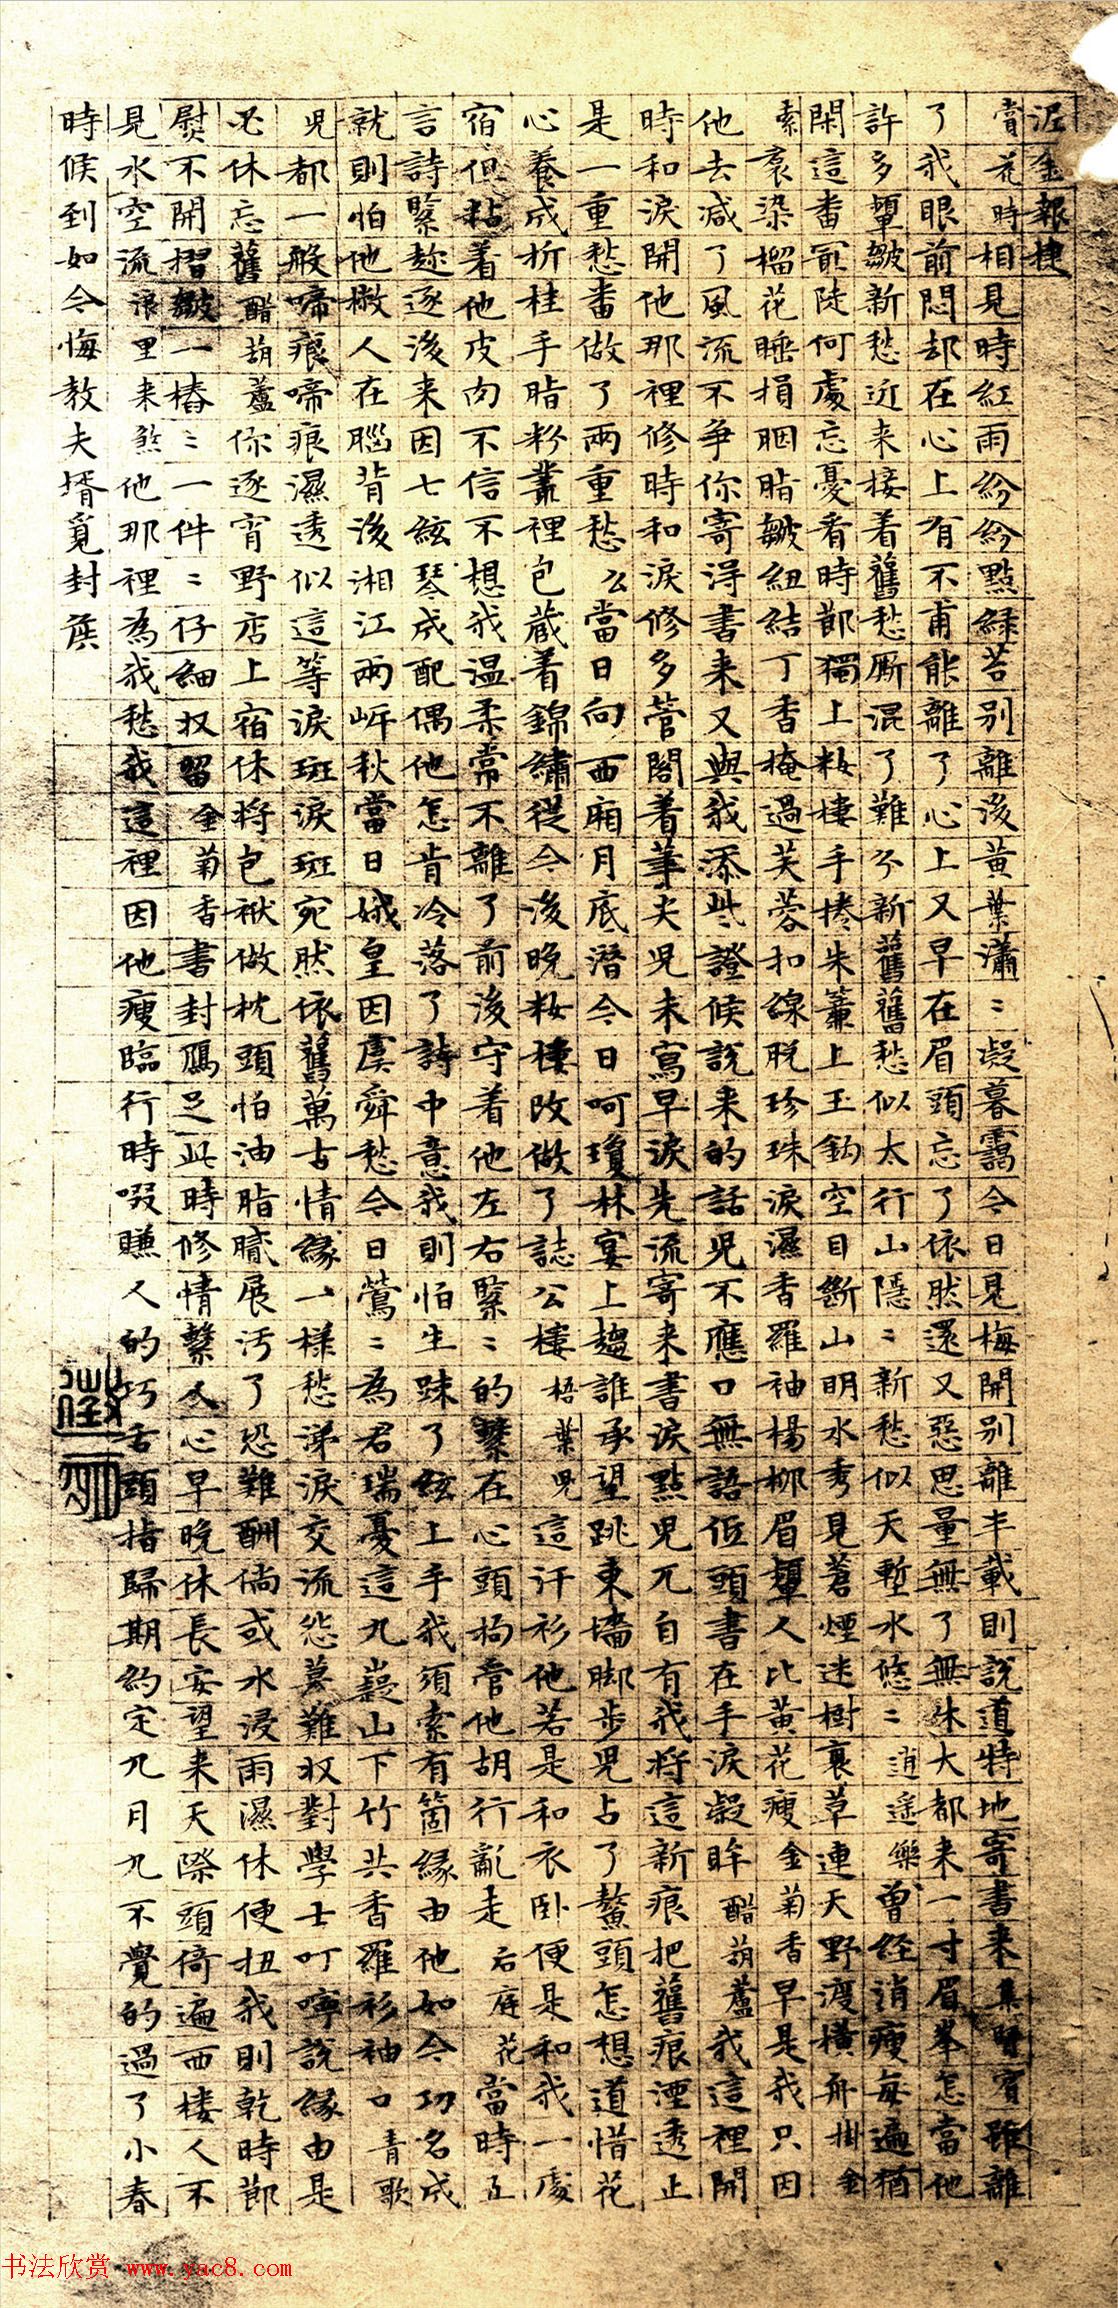 泥金報捷
賞花時相見時紅雨紛紛點綠苔別離後黃葉瀟〻凝暮靄今日見梅開別離半載則說道特地寄書來集賢賓雖離
了我眼前悶却在心上有不甫能離了心上又早在眉頭忘了依然還又惡思量無了無休大都来一寸眉峯怎當他
許多顰皺新愁近来接着舊愁厮混了難分新舊舊愁似太行山隱〻新愁似天塹水悠〻逍遥樂曾經消瘦每遍猶
閑這番寂陡何處忘憂看時節獨上粧樓手捲朱簾上玉鈎空目斷山明水秀見蒼煙迷樹衰草連天野渡橫舟掛金
索裙染榴花睡損胭脂皺紐結丁香掩過芙蓉扣線脫珍珠淚濕香羅袖楊柳眉顰人比黃花瘦金菊香早是我只因
他去減了風流不争你寄淂書来又與我添些證候說来的話児不應口無語低頭書在手淚凝眸醋葫蘆我這裡開
時和淚開他那裡修時和淚修多管閣着筆尖児未寫早淚先流寄来書淚點児兀自有我将這新痕把舊痕湮透止
是一重愁番做了兩重愁么當日向西廂月底潛今日呵瓊林宴上趨誰承望跳東墻脚步児占了鰲頭怎想道惜花
心養成折桂手脂粉叢裡包藏着錦繡從今後晚粧樓改做了誌公樓梧葉児這汗衫他若是和衣卧便是和我一處
宿但粘着他皮肉不信不想我温柔常不離了前後守着他左右緊〻的繫在心頭拘管他胡行亂走后庭花當時五
言詩緊趂逐後来因七絃琴成配偶他怎肯冷落了詩中意我則怕生踈了絃上手我須索有箇緣由他如今功名成
就則怕他撇人在腦背後湘江兩岓秋當日娥皇因虞舜愁今日鶯〻為君瑞憂這九嶷山下竹共香羅衫袖口青歌
児都一般啼痕啼痕濕透似這等淚斑淚斑宛然依舊萬古情緣一樣愁涕淚交流怨慕難收對學士叮嚀說緣由是
必休忘舊醋葫蘆你逐宵野店上宿休将包袱做枕頭怕油脂膩展污了恐難酬倘或水浸雨濕休便扭我則乾時節
熨不開摺皺一樁〻一件〻仔細收留金菊香書封鴈足此時修情繫人心早晚休長安望来天際頭倚遍西樓人不
見水空流浪里来煞他那裡為我愁我這裡因他瘦臨行時啜賺人的巧舌頭指歸期約定九月九不覺的過了小春
時候到如今悔教夫壻覓封侯
书法欣赏 www.yac8.com